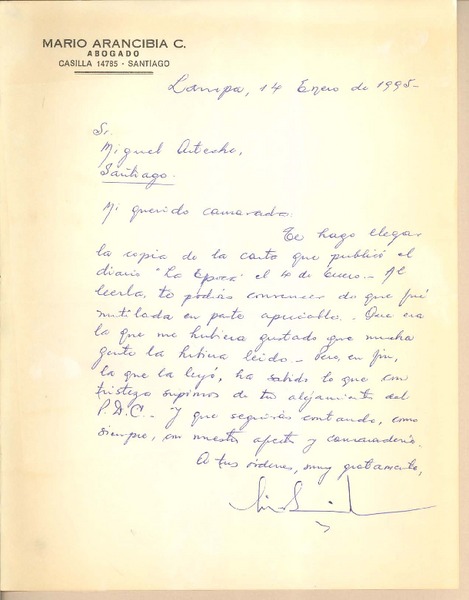 MARIO ARANCIBIA C.
ABOGADO
CASILLA 14785 - SANTIAGO
Lampa, 14 Enero de 1995-
Sr.
Miguel Arteche,
Santiago.
Mi querido camarada:
Te hago llegar
la copia de la carta que publicó el
diario "La Epoca" el 4 de Enero.- Al
leerla, te podrás convencer de que fué
mutilada en parte apreciable.- Que era
la que me hubiera gustado que mucha
gente la hubiera leído.- Pero, en fin,
la que la leyó, ha sabido lo que con
tristeza supimos de tu alejamiento del
P.D.C.- Y que seguirás contando, como
siempre, con nuestro afecto y camaradería.
A tus órdenes, muy gratamente,